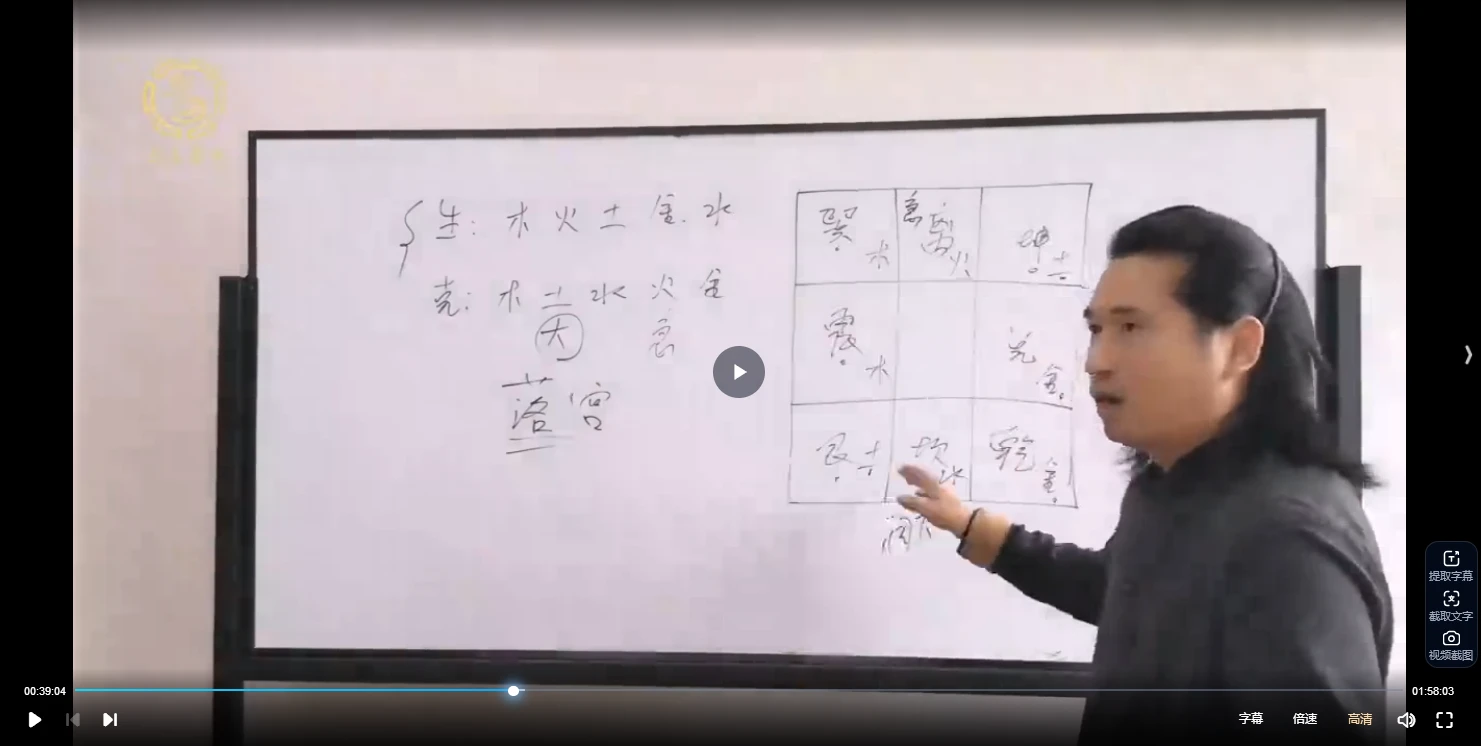 生：木火土金.水
克：木土水火金
大
落宫
巽
木
離
火
坤
土
震
木
兑
金
艮
土
坎
水
乾
金
提取字幕
截取文字
视频截图
00:39:04
01:58:03
字幕
倍速
高清